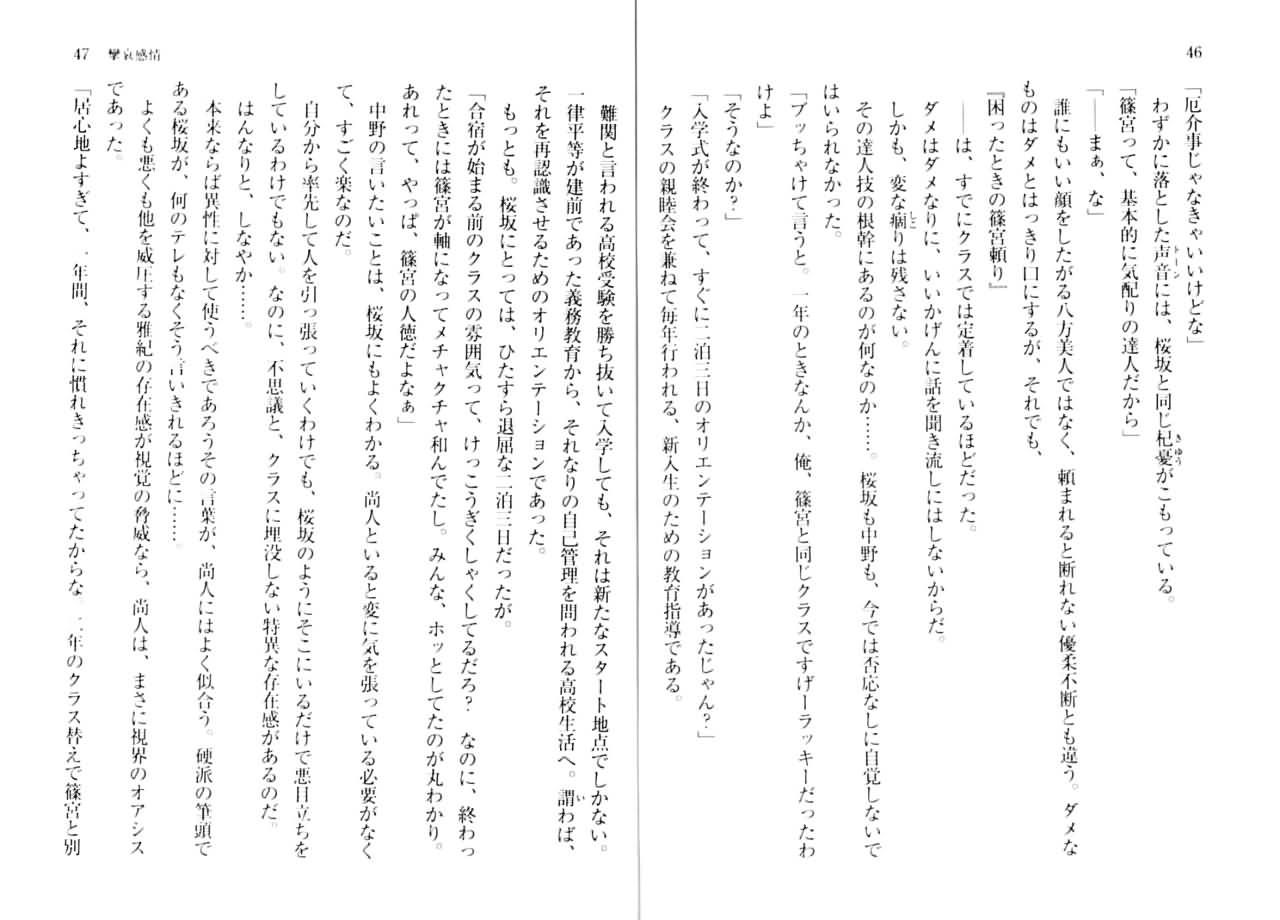 46
「厄介事じゃなきゃいいけどな」
わずかに落とした声音には、桜坂と同じ杞憂がこもっている。
トーン
きゆう
「篠宮って、基本的に気配りの達人だから」
「――まぁ、な」
誰にもいい顔をしたがる八方美人ではなく、頼まれると断れない優柔不断とも違う。ダメな
ものはダメとはっきり口にするが、それでも、
『困ったときの篠宮頼り』
――は、すでにクラスでは定着しているほどだった。
ダメはダメなりに、いいかげんに話を聞き流しにはしないからだ。
しかも、変な痼りは残さない。
しこ
その達人技の根幹にあるのが何なのか……。桜坂も中野も、今では否応なしに自覚しないで
はいられなかった。
「ブッちゃけて言うと。一年のときなんか、俺、篠宮と同じクラスですげーラッキーだったわ
けよ」
「そうなのか?」
「入学式が終わって、すぐに二泊三日のオリエンテーションがあったじゃん?」
クラスの親睦会を兼ねて毎年行われる、新入生のための教育指導である。
難関と言われる高校受験を勝ち抜いて入学しても、それは新たなスタート地点でしかない。
一律平等が建前であった義務教育から、それなりの自己管理を問われる高校生活へ。謂わば、
い
それを再認識させるためのオリエンテーションであった。
もっとも。桜坂にとっては、ひたすら退屈な二泊三日だったが。
「合宿が始まる前のクラスの雰囲気って、けっこうぎくしゃくしてるだろ? なのに、終わっ
たときには篠宮が軸になってメチャクチャ和んでたし。みんな、ホッとしてたのが丸わかり。
あれって、やっぱ、篠宮の人徳だよなぁ」
中野の言いたいことは、桜坂にもよくわかる。尚人といると変に気を張っている必要がなく
て、すごく楽なのだ。
自分から率先して人を引っ張っていくわけでも、桜坂のようにそこにいるだけで悪目立ちを
しているわけでもない。なのに、不思議と、クラスに埋没しない特異な存在感があるのだ。
はんなりと、しなやか……。
本来ならば異性に対して使うべきであろうその言葉が、尚人にはよく似合う。硬派の筆頭で
ある桜坂が、何のテレもなくそう言いきれるほどに……。
よくも悪くも他を威圧する雅紀の存在感が視覚の脅威なら、尚人は、まさに視界のオアシス
であった。
「居心地よすぎて、一年間、それに慣れきっちゃってたからな。二年のクラス替えで篠宮と別
47 攣哀感情